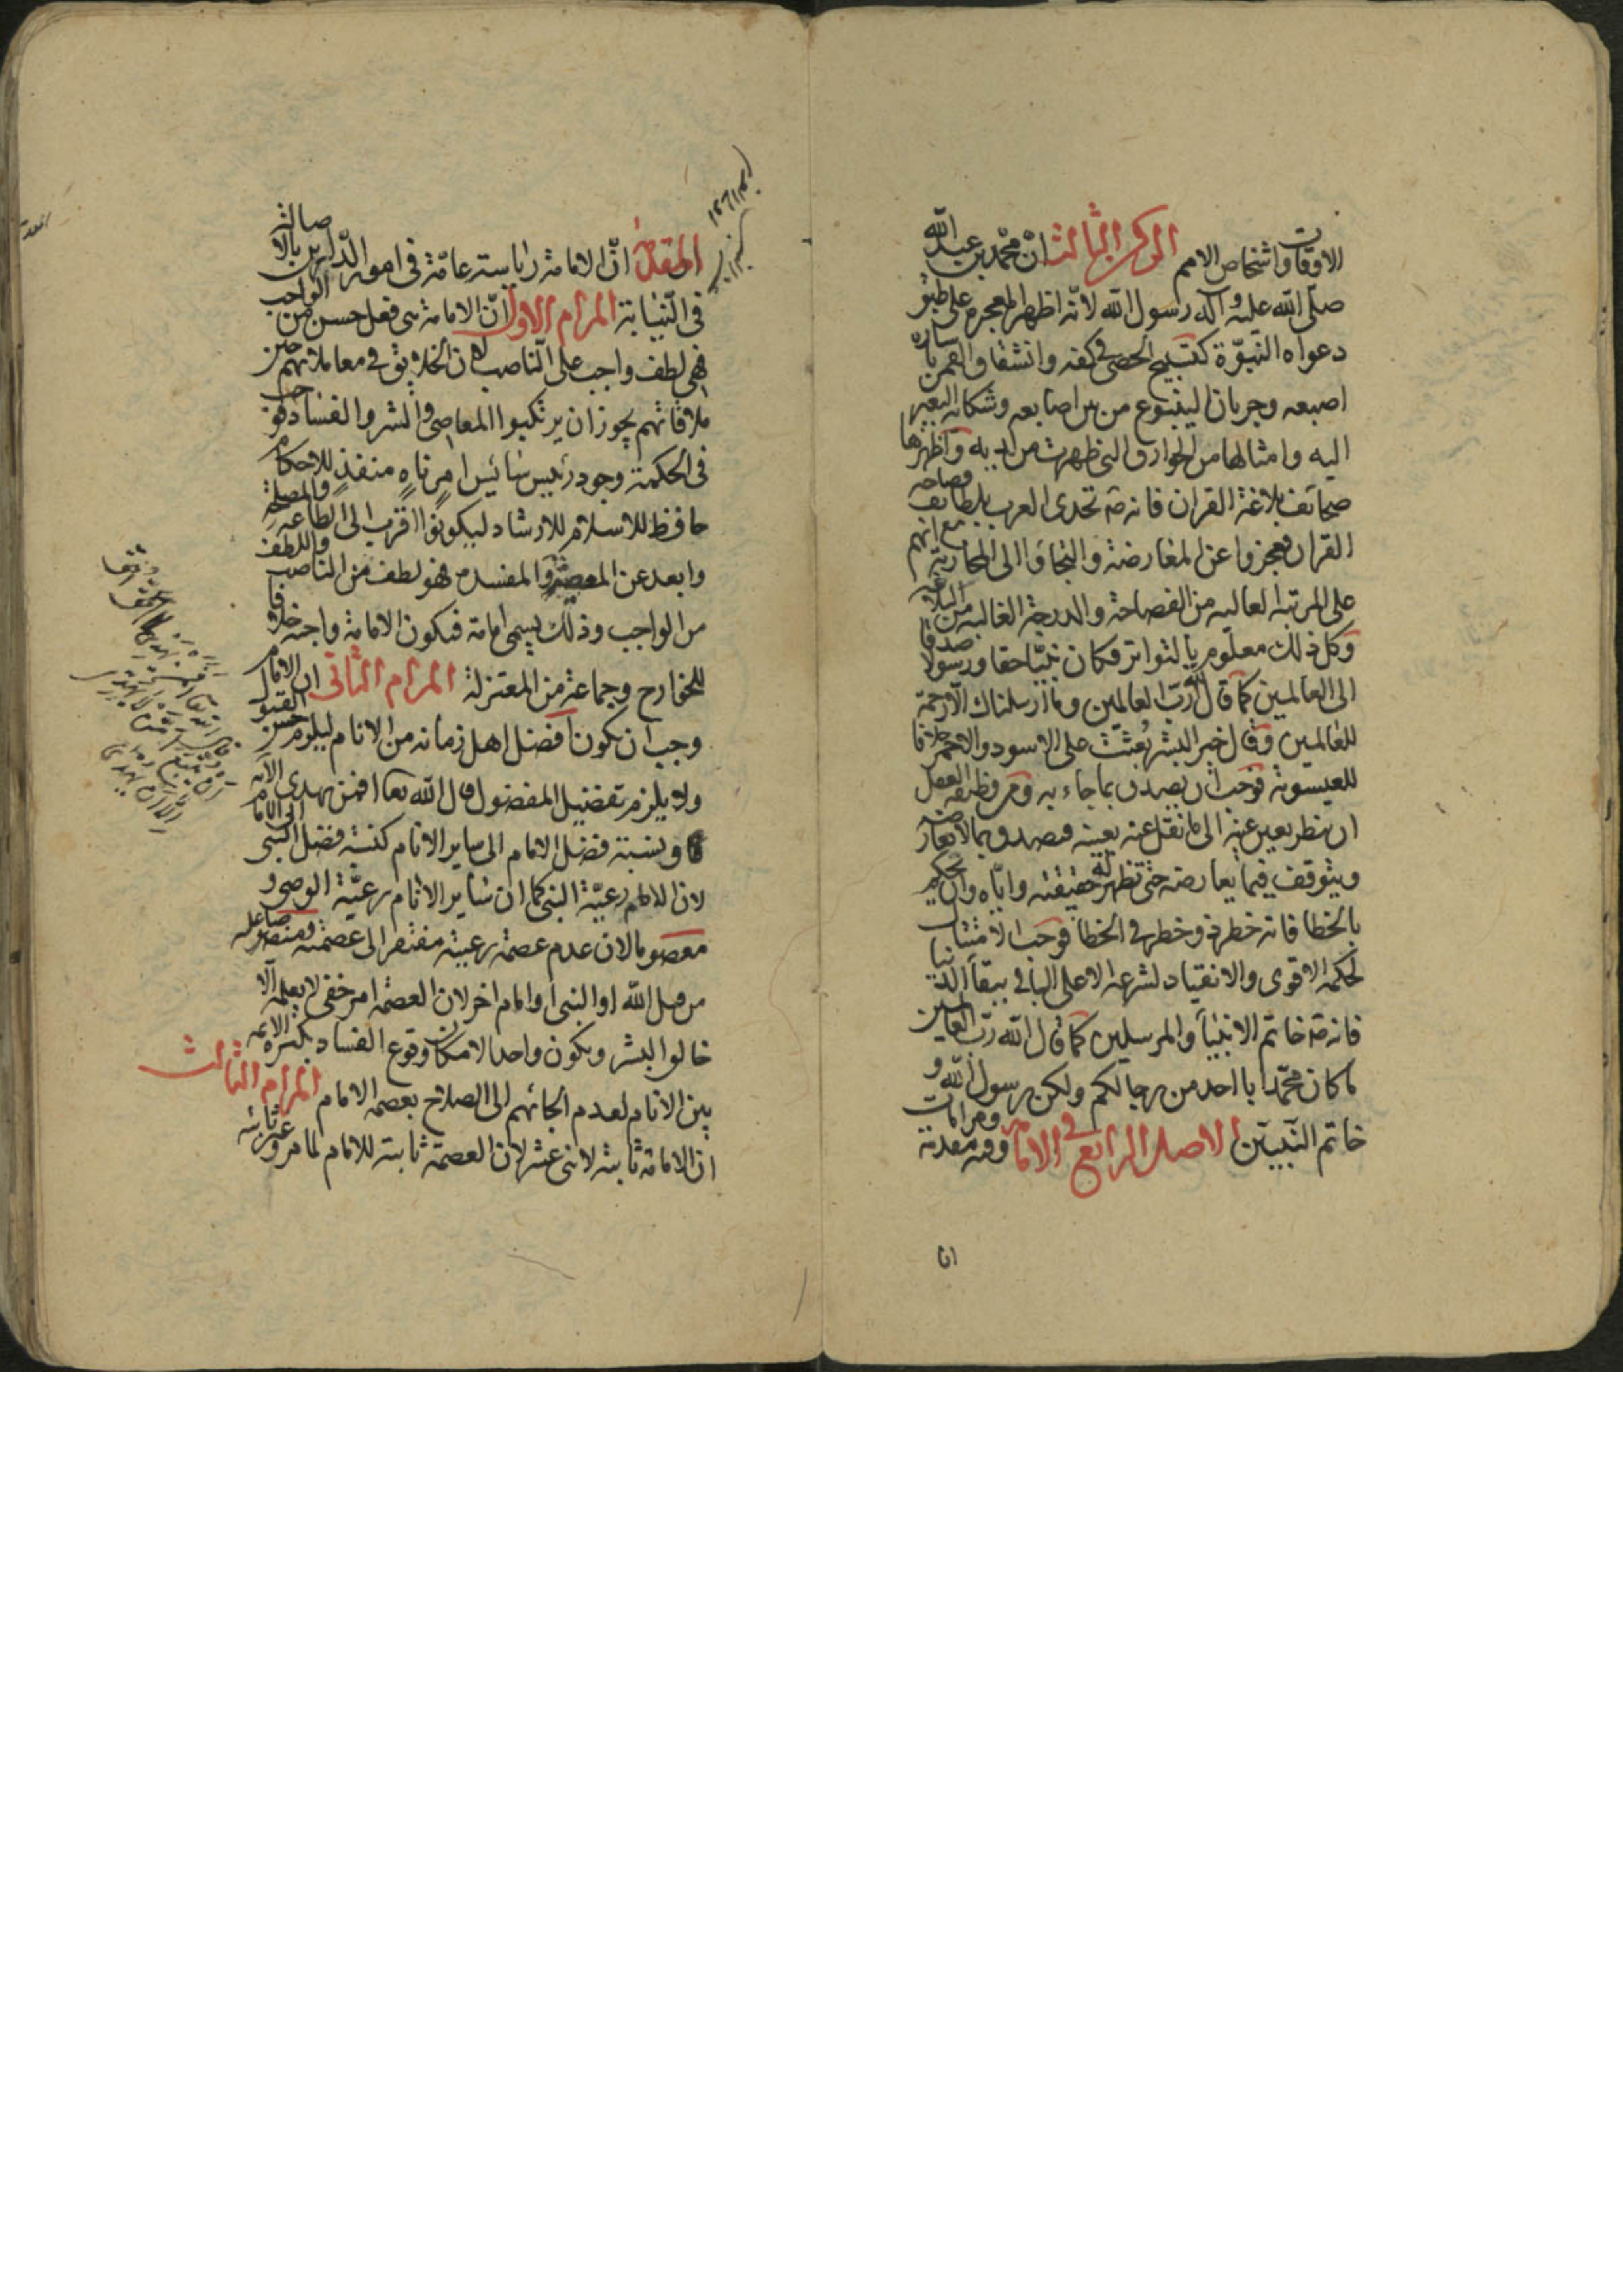 الاوقات واشخاص الامم الركن الثالث ان محمد بن عبد الله
صلى الله عليه وآله رسول الله لانه اظهر المعجزة على طبق
دعواه النبوة كتسبيح الحصى في كفه وانشقاق القمر باشارة
اصبعه وجريان الينبوع من بين اصابعه وشكاية البعير
اليه وامثالها من الخوارق التى ظهرت من لديه واظهرها
صحائف بلاغة القران فانه تحدى العرب بلطائف فصاحة
القران فعجزوا عن المعارضة والتجاؤا الى المحاربة مع انهم
على المرتبة العالية من الفصاحة والدرجة الغالبة من البلاغة
وكل ذلك معلوم بالتواتر فكان نبيا حقا ورسولا صدقا
الى العالمين كما قال الله رب العالمين وما ارسلناك الا رحمة
للعالمين وقال خير البشر بعثت على الاسود والاحمر خلافا
للعيسوية فوجب ان يصدق بما جاء به ومن وظيفة العقل
ان ينظر بعين عينه الى ما نقل عنه بعينه فيصدق بما لا يعارضه
ويتوقف فيما يعارضه حتى تظهر له حقيقته واياه وان يحكم
بالخطا فانه خطرة وخطر في الخطا فوجب الامتثال
لحكمه الاقوى والانقياد لشرعه الاعلى الباقي ببقاء الدنيا
فانه خاتم الانبياء والمرسلين كما قال الله رب العالمين
ما كان محمد ابا احد من رجالكم ولكن رسول الله و
خاتم النبيين الاصل الرابع في الامامة وفيه مقدمة ومرامات
انا
المقدمة ان الامامة رياسة عامة فى امور الدارين بالاصالة
فى النيابة المرام الاول ان الامامة هى فعل حسن من الواجب
فهى لطف واجب على الناصب لان الخلايق في معاملاتهم حين
ملاقاتهم يجوز ان يرتكبوا المعاصى والشر والفساد فوجب
فى الحكمة وجود رئيس سائس امر ناه منفذ للاحكام
حافظ للاسلام للارشاد ليكونوا اقرب الى الطاعة والمصلحة
وابعد عن المعصية والمفسدة فهو لطف من الناصب واللطف
من الواجب وذلك يسمى امامة فتكون الامامة واجبة خلافا
للخوارج وجماعة من المعتزلة المرام الثانى ان الامام
وجب ان يكون افضل اهل زمانه من الانام ليلزم حسن القبول
ولا يلزم تفضيل المفضول قال الله تعا افمن يهدى الاية
ونسبة فضل الامام الى ساير الانام كنسبة فضل النبى الى الامام
لان الامام رعية النبى كما ان ساير الانام رعية الوصى و
معصوما لان عدم عصمة رعيته مفتقر الى عصمته ومنصوصا عليه
من قبل الله او النبى او امام اخر لان العصمة امر خفى لا يعلمه الا
خالق البشر ويكون واحدا لامكان وقوع الفساد بكثرة الائمة
بين الانام لعدم الجائهم الى الصلاح بعصمة الامام المرام الثالث
ان الامامة ثابتة لاثنى عشر لان العصمة ثابتة للامام لما مر وغير ثابتة